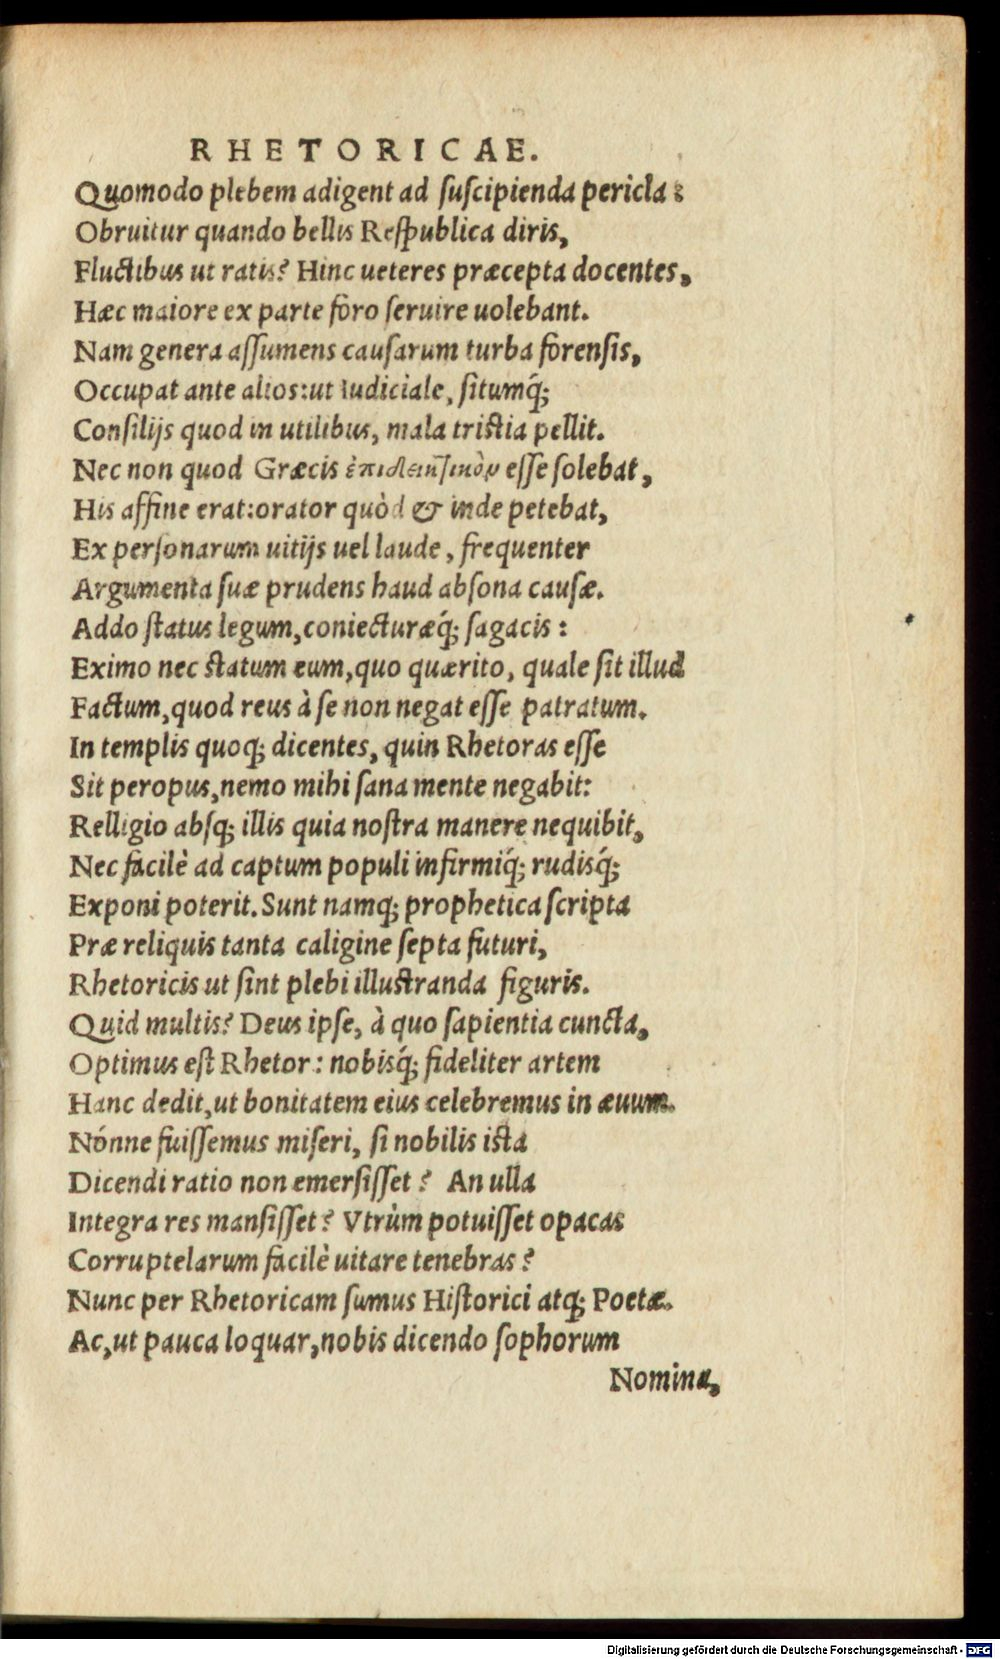 RHETORICAE.
Quomodo plebem adigent ad suscipienda pericla:
Obruitur quando bellis Respublica diris,
Fluctibus ut ratis? Hinc ueteres præcepta docentes,
Hæc maiore ex parte foro seruire uolebant.
Nam genera assumens causarum turba forensis,
Occupat ante alios: ut Iudiciale, situmq́;
Consilijs quod in utilibus, mala tristia pellit.
Nec non quod Græcis ἐπιδεικτικὸν esse solebat,
His affine erat: orator quòd & inde petebat,
Ex personarum uitijs uel laude, frequenter
Argumenta suæ prudens haud absona causæ.
Addo status legum, coniecturæq́; sagacis:
Eximo nec statum eum, quo quærito, quale sit illud
Factum, quod reus à se non negat esse patratum.
In templis quoq; dicentes, quin Rhetoras esse
Sit peropus, nemo mihi sana mente negabit:
Relligio absq; illis quia nostra manere nequibit,
Nec facilè ad captum populi infirmiq́; rudisq́;
Exponi poterit. Sunt namq; prophetica scripta
Præ reliquis tanta caligine septa futuri,
Rhetoricis ut sint plebi illustranda figuris.
Quid multis? Deus ipse, à quo sapientia cuncta,
Optimus est Rhetor: nobisq́; fideliter artem
Hanc dedit, ut bonitatem eius celebremus in æuum.
Nónne fuissemus miseri, si nobilis ista
Dicendi ratio non emersisset? An ulla
Integra res mansisset? Vtrùm potuisset opacas
Corruptelarum facilè uitare tenebras?
Nunc per Rhetoricam sumus Historici atq; Poetæ.
Ac, ut pauca loquar, nobis dicendo sophorum
Nomina,
Digitalisierung gefördert durch die Deutsche Forschungsgemeinschaft - DFG